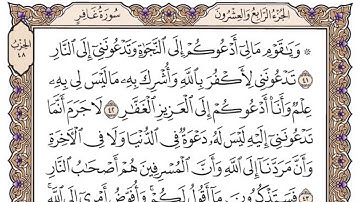 الجزء الرابع والعشرون
سورة غافر
الحزب
٤٨
۞ وَيَٰقَوْمِ مَا لِىٓ أَدْعُوكُمْ إِلَى ٱلنَّجَوٰةِ وَتَدْعُونَنِىٓ إِلَى ٱلنَّارِ
٤١ تَدْعُونَنِى لِأَكْفُرَ بِٱللَّهِ وَأُشْرِكَ بِهِۦ مَا لَيْسَ لِى بِهِۦ
عِلْمٌ وَأَنَا۠ أَدْعُوكُمْ إِلَى ٱلْعَزِيزِ ٱلْغَفَّٰرِ ٤٢ لَا جَرَمَ أَنَّمَا
تَدْعُونَنِىٓ إِلَيْهِ لَيْسَ لَهُۥ دَعْوَةٌ فِى ٱلدُّنْيَا وَلَا فِى ٱلْءَاخِرَةِ
وَأَنَّ مَرَدَّنَآ إِلَى ٱللَّهِ وَأَنَّ ٱلْمُسْرِفِينَ هُمْ أَصْحَٰبُ ٱلنَّارِ
٤٣ فَسَتَذْكُرُونَ مَآ أَقُولُ لَكُمْ وَأُفَوِّضُ أَمْرِىٓ إِلَى ٱللَّهِ